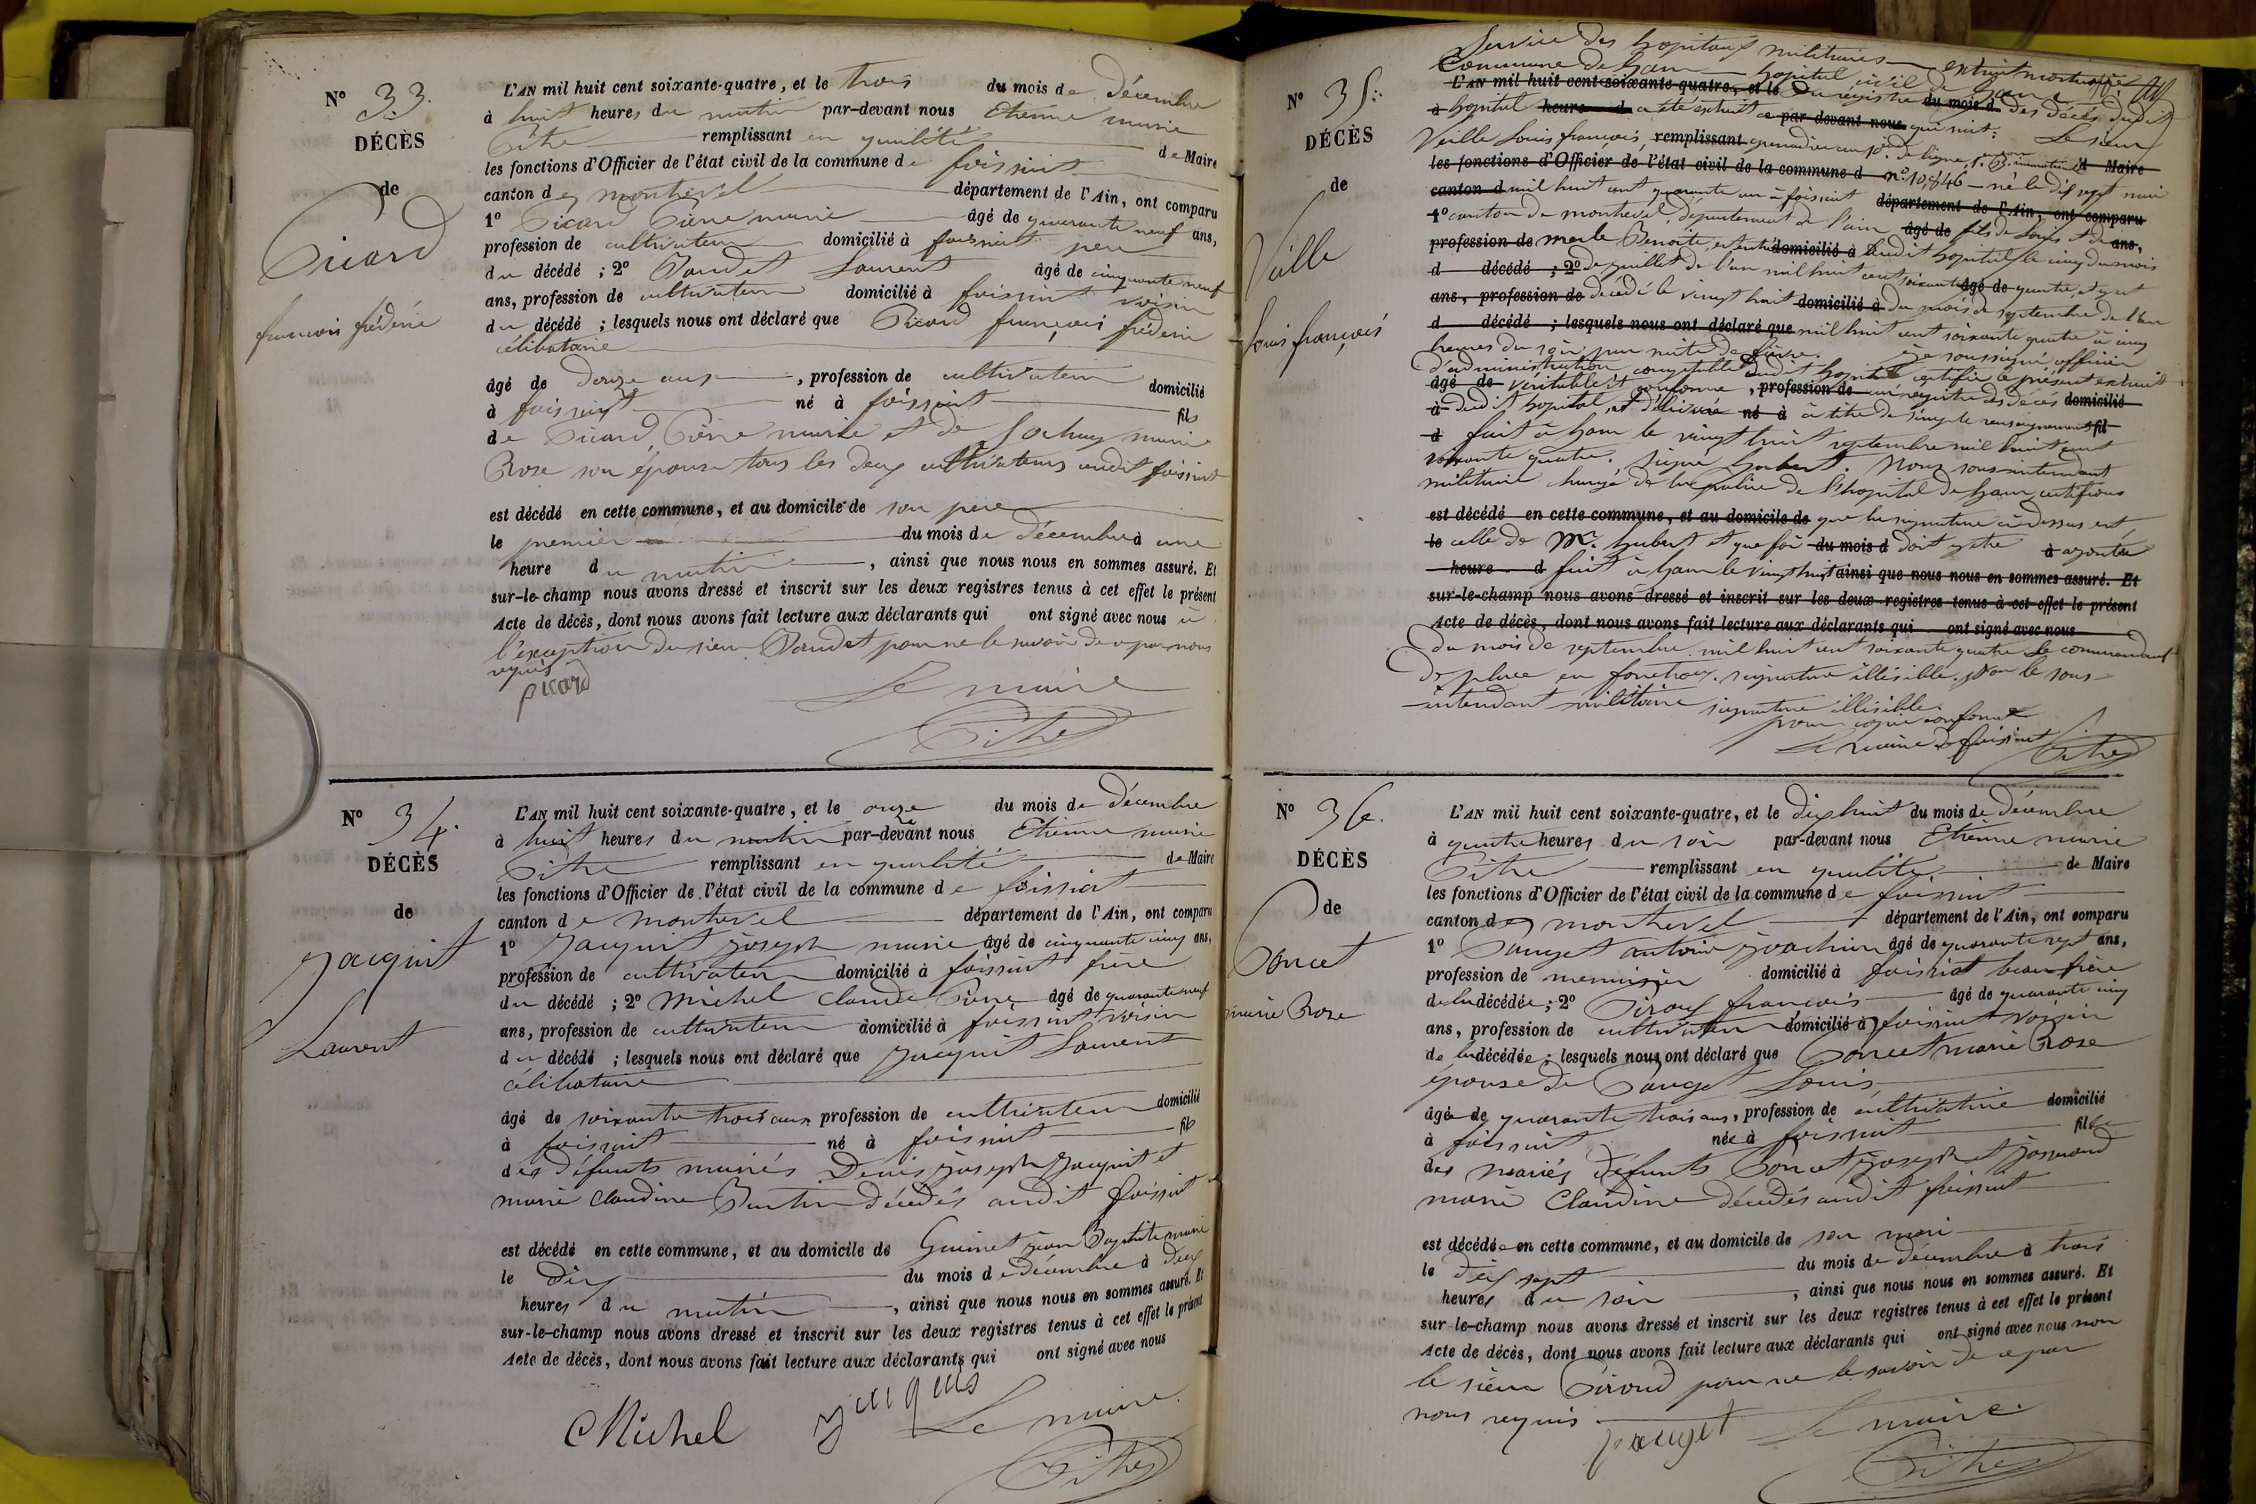 N° 33.
DÉCÈS
de
Picard
françois frédéric
L'AN mil huit cent soixante-quatre, et le trois du mois de Décembre
à huit heures du matin par-devant nous Etienne marie
Pitre remplissant en qualité de Maire
les fonctions d'Officier de l'état civil de la commune de foissiat
canton de montrevel département de l'Ain, ont comparu
1° Picard Pierre marie âgé de quarante neuf ans,
profession de cultivateur domicilié à foissiat père
du décédé ; 2° Paudet Laurent âgé de cinquante neuf
ans, profession de cultivateur domicilié à foissiat voisin
du décédé ; lesquels nous ont déclaré que Picard françois frédéric
célibataire
âgé de Douze ans, profession de cultivateur domicilié
à foissiat né à foissiat fils
de Picard Pierre marie et de Sochay marie
Rose son épouse tous les deux cultivateurs audit foissiat
est décédé en cette commune, et au domicile de son père
le premier du mois de Décembre à une
heure du matin, ainsi que nous nous en sommes assuré. Et
sur-le-champ nous avons dressé et inscrit sur les deux registres tenus à cet effet le présent
Acte de décès, dont nous avons fait lecture aux déclarants qui ont signé avec nous à
l'exception du sieur Paudet pour ne le savoir de ce par nous
requis
picard Le maire
Pitre
N° 34.
DÉCÈS
de
Jacquit
Laurent
L'AN mil huit cent soixante-quatre, et le onze du mois de Décembre
à huit heures du matin par-devant nous Etienne marie
Pitre remplissant en qualité de Maire
les fonctions d'Officier de l'état civil de la commune de foissiat
canton de montrevel département de l'Ain, ont comparu
1° Jacquit joseph marie âgé de cinquante cinq ans,
profession de cultivateur domicilié à foissiat frère
du décédé ; 2° Michel Claude Pierre âgé de quarante neuf
ans, profession de cultivateur domicilié à foissiat voisin
du décédé ; lesquels nous ont déclaré que Jacquit Laurent
célibataire
âgé de soixante trois ans profession de cultivateur domicilié
à foissiat né à foissiat fils
des défunts mariés Denis joseph Jacquit et
marie Claudine décédés audit foissiat
est décédé en cette commune, et au domicile de jean Baptiste marie
le Dix du mois de décembre à deux
heures du matin, ainsi que nous nous en sommes assuré. Et
sur-le-champ nous avons dressé et inscrit sur les deux registres tenus à cet effet le présent
Acte de décès, dont nous avons fait lecture aux déclarants qui ont signé avec nous
Michel Le maire
Pitre
N° 35.
DÉCÈS
de
Veille
Louis françois
Service des hopitaux militaires extrait mortuaire
Commune de ham hopital civil de ham
L'AN mil huit cent soixante-quatre, et le Du registre du mois d des décès dudit
à hopital heure d a été extrait ce par-devant nous qui suit: Le sieur
Veille Louis françois, remplissant grenadier au de ligne
les fonctions d'Officier de l'état civil de la commune d n° 10,846 né le dix sept mai Maire
canton d mil huit cent quarante un à foissiat département de l'Ain, ont comparu
1° canton de montrevel, département de l'ain, âgé de fils de Louis et de ans,
profession de merle Benoite, est entré domicilié à audit hopital le cinq du mois
d décédé ; 2° de juillet de l'an mil huit cent soixante âgé de quatre, et y est
ans, profession de décédé le vingt huit domicilié à du mois de septembre de l'an
d décédé ; lesquels nous ont déclaré que mil huit cent soixante quatre à cinq
heures du soir par suite de fièvre. je soussigné officier
d'administration comptable dudit hopital certifie le présent extrait
âgé de véritable et conforme, profession de au registre des décès domicilié
à dudit hopital et délivré né à à titre de simple renseignement fil
d fait à ham le vingt huit septembre mil huit cent
soixante quatre. signé hubert. Nous sous-intendant
militaire chargé de la police de l'hopital de ham certifions
est décédé en cette commune, et au domicile de que la signature ci-dessus est
le celle de Mr. hubert et que foi du mois d doit y être à ajoutée
heure d fait à ham le vingt huit ainsi que nous nous en sommes assuré. Et
sur-le-champ nous avons dressé et inscrit sur les deux registres tenus à cet effet le présent
Acte de décès, dont nous avons fait lecture aux déclarants qui ont signé avec nous
du mois de septembre mil huit cent soixante quatre Le commandant
de place en fonction. signature illisible. Pour le sous-
intendant militaire signature illisible.
pour copie conforme
Le maire de foissiat Pitre
N° 36.
DÉCÈS
de
Poncet
marie Rose
L'AN mil huit cent soixante-quatre, et le Dix huit du mois de Décembre
à quatre heures du soir par-devant nous Etienne marie
Pitre remplissant en qualité de Maire
les fonctions d'Officier de l'état civil de la commune de foissiat
canton de montrevel département de l'Ain, ont comparu
1° Pauget antoine joachim âgé de quarante sept ans,
profession de menuisier domicilié à foissiat beau frère
de la décédée ; 2° Piroud françois âgé de quarante cinq
ans, profession de cultivateur domicilié à foissiat voisin
de la décédée ; lesquels nous ont déclaré que Poncet marie Rose
épouse de Pauget Louis
âgée de quarante trois ans, profession de cultivatrice domicilié
à foissiat née à foissiat fille
des mariés défunts Poncet joseph et josserand
marie Claudine décédés audit foissiat
est décédée en cette commune, et au domicile de son mari
le Dix sept du mois de décembre à trois
heures du soir, ainsi que nous nous en sommes assuré. Et
sur-le-champ nous avons dressé et inscrit sur les deux registres tenus à cet effet le présent
Acte de décès, dont nous avons fait lecture aux déclarants qui ont signé avec nous non
le sieur Piroud pour ne le savoir de ce par
nous requis
pauget Le maire
Pitre